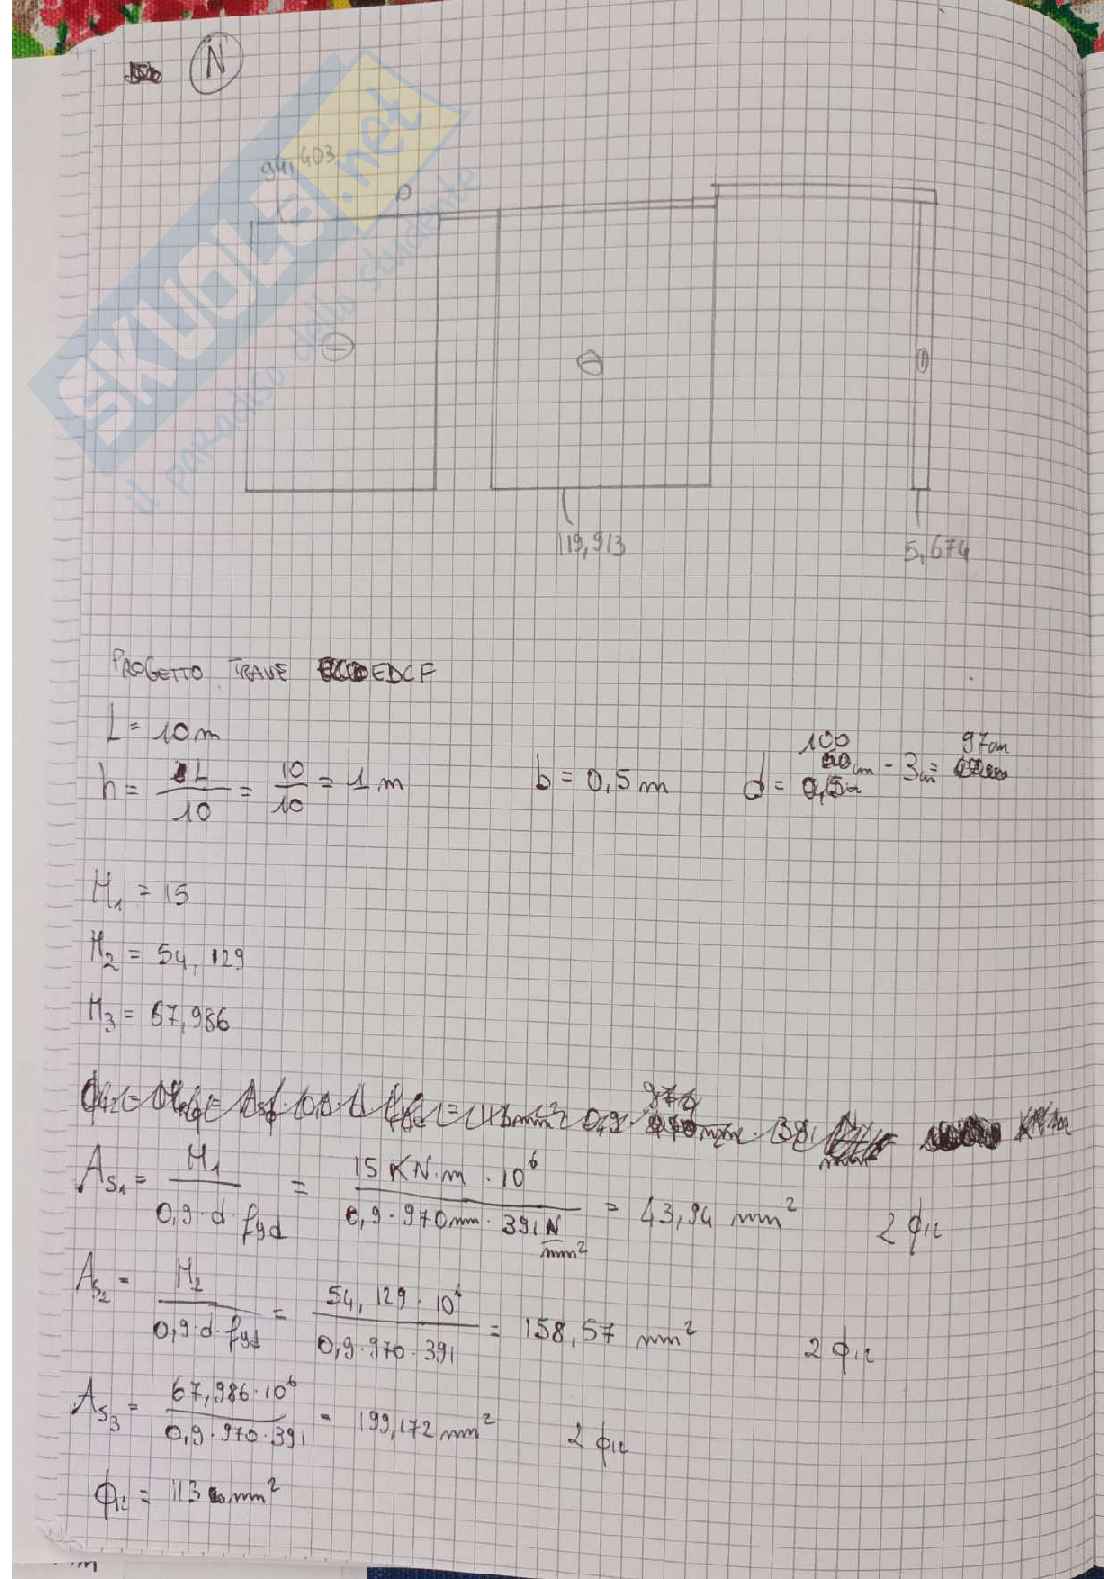 N
941,403
SKUOLA.net
il paradiso dello studente
0
119,913
5,674
PROGETTO TRAVE EDCF
L = 10 m
h = L / 10 = 10 / 10 = 1 m b = 0,5 m d = 100 cm - 3cm = 97cm
M1 = 15
M2 = 54,129
M3 = 67,986
As1 = M1 / 0,9·d·fyd = 15 KN·m · 10^6 / 0,9·970mm·391 N/mm² = 43,94 mm² 2 ϕ12
As2 = M2 / 0,9·d·fyd = 54,129·10^6 / 0,9·970·391 = 158,57 mm² 2 ϕ12
As3 = 67,986·10^6 / 0,9·970·391 = 199,172 mm² 2 ϕ12
ϕ12 = 113 mm²